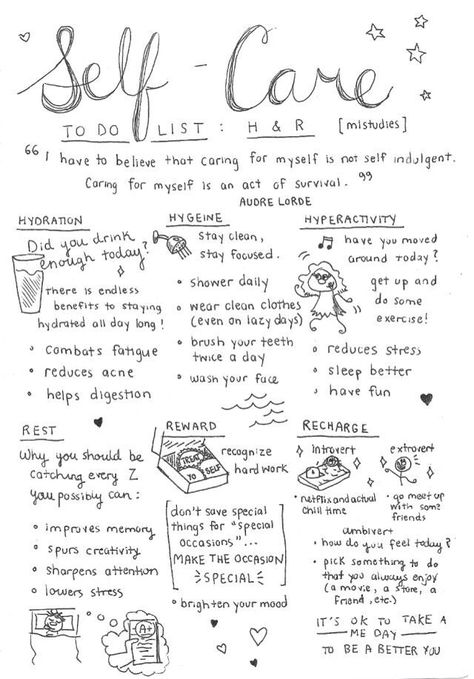 Self-Care
TO DO LIST: H & R [mistudies]
"I have to believe that caring for myself is not self indulgent.
Caring for myself is an act of survival."
AUDRE LORDE
HYDRATION
Did you drink
enough today?
There is endless
benefits to staying
hydrated all day long!
• combats fatigue
• reduces acne
• helps digestion
HYGEINE
stay clean,
stay focused.
• shower daily
• wear clean clothes
(even on lazy days)
• brush your teeth
twice a day
• wash your face
HYPERACTIVITY
have you moved
around today?
get up and
do some
exercise!
• reduces stress
• sleep better
• have fun
REST
Why you should be
catching every Z
you possibly can:
• improves memory
• spurs creativity
• sharpens attention
• lowers stress
A+
REWARD
TREAT
YO SELF
recognize
hard work
[don't save special
things for "special
occasions"...
MAKE THE OCCASION
SPECIAL]
• brighten your mood
RECHARGE
introvert
• netflix and actual
chill time
extrovert
• go meet up
with some
friends
ambivert
• how do you feel today?
• pick something to do
that you always enjoy
(a movie, a store, a
friend, etc.)
IT'S OK TO TAKE A
ME DAY
TO BE A BETTER YOU